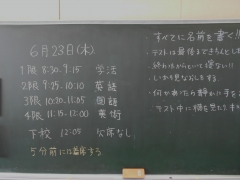 6月23日(木)
1限 8:30-9:15 学活
2限 9:25-10:10 英語
3限 10:20-11:05 国語
4限 11:15-12:00 美術
下校 12:05 欠席なし
5分前には着席する
・すべてに名前を書く!!
・テストは最後まで
・終わったからといって寝ない!!
・しっかり見なおしをする
・何かあったら静かに手を
・テスト中に横を見たり